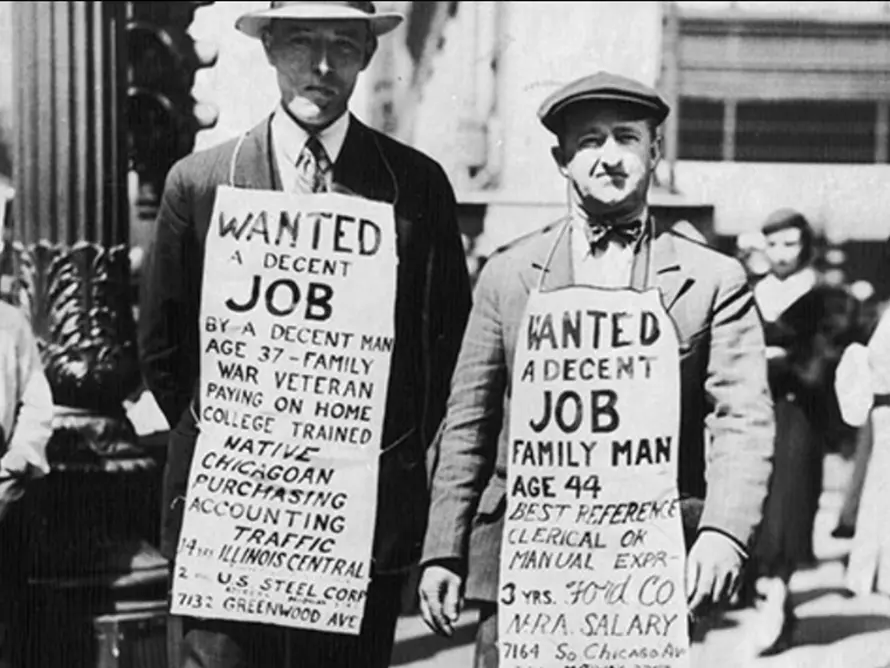 WANTED
A DECENT
JOB
BY A DECENT MAN
AGE 37-FAMILY
WAR VETERAN
PAYING ON HOME
COLLEGE TRAINED
NATIVE
CHICAGOAN
PURCHASING
ACCOUNTING
TRAFFIC
14 YRS ILLINOIS CENTRAL
2 U.S. STEEL CORP
7132 GREENWOOD AVE
WANTED
A DECENT
JOB
FAMILY MAN
AGE 44
BEST REFERENCE
CLERICAL OR
MANUAL EXPR-
3 YRS. Ford Co
N.R.A. SALARY
7164 So. Chicago Av